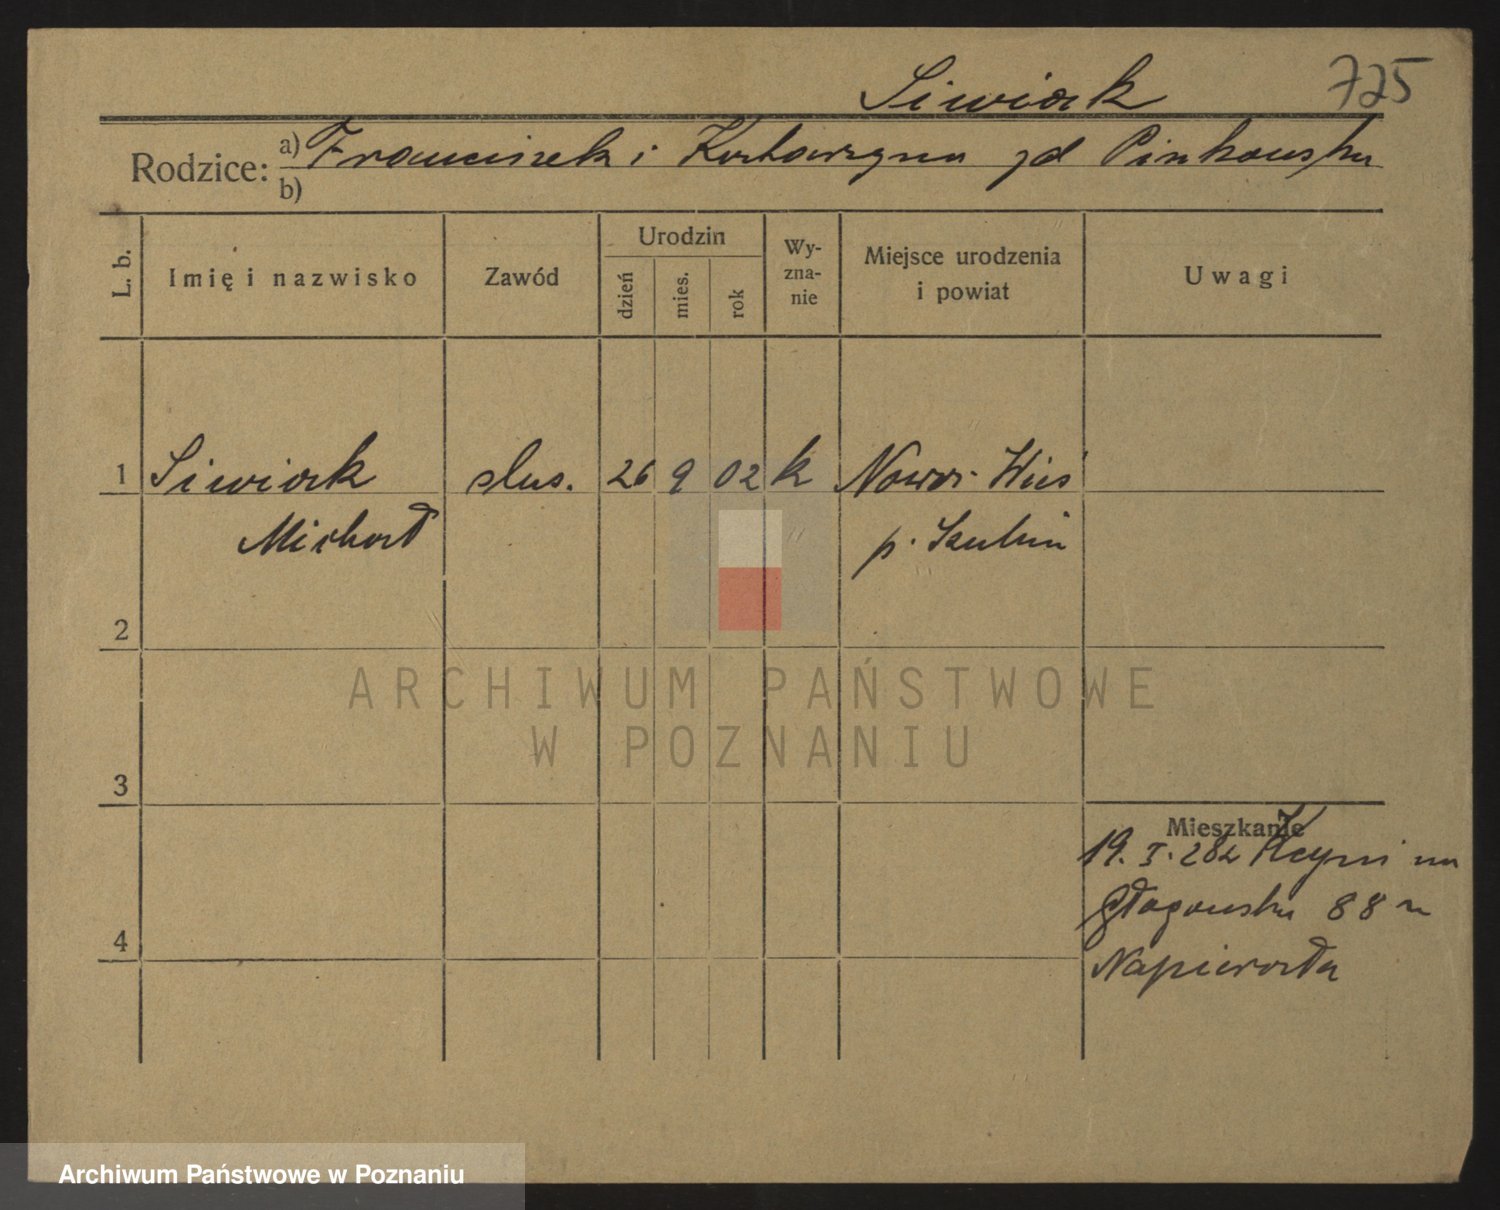 Siwiak 725
Rodzice: a) Franciszek i Katarzyna zd Pinkowska
b)
L. b. Imię i nazwisko Zawód Urodzin dzień mies. rok Wy-zna-nie Miejsce urodzenia i powiat Uwagi
1 Siwiak ślus. 26 9 02 k Nowa-Wieś
Michał p. Szubin
2
ARCHIWUM PAŃSTWOWE
W POZNANIU
3
Mieszkanie
19. I. 282 Kcyni na
4 Głogowska 88 u
Napierała
Archiwum Państwowe w Poznaniu